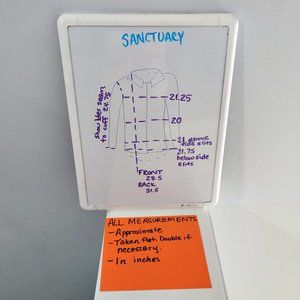 SANCTUARY
shoulder seam
to cuff 24.75
21.25
20
21 above
side slits
21.75
below side
slits
FRONT
28.5
BACK
31.5
ALL MEASUREMENTS
- Approximate
- Taken flat: Double if
necessary.
- In inches